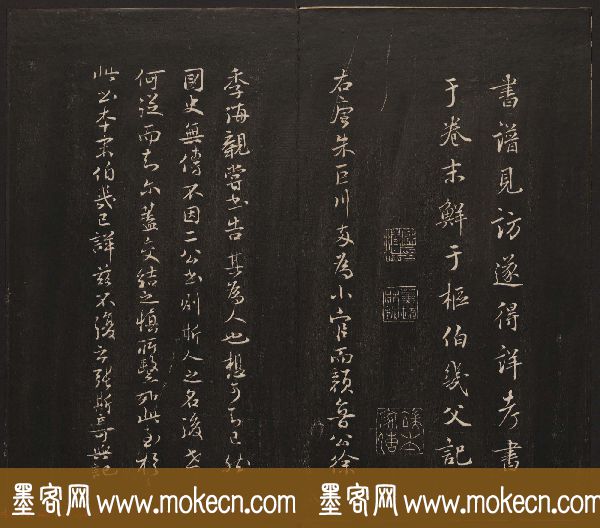 書譜見訪遂得詳考書
于卷末鮮于樞伯幾父記
右唐朱巨川敕為小官而顏魯公徐
季海親嘗書告其為人也想可知已然
國史無傳不因二公書則斯人之名後世
何從而知尔蓋交結之慎所繫如此
此書本末伯幾已詳茲不復書張斯立題記
墨客网 www.mokecn.com 墨客网 www.mokecn.com